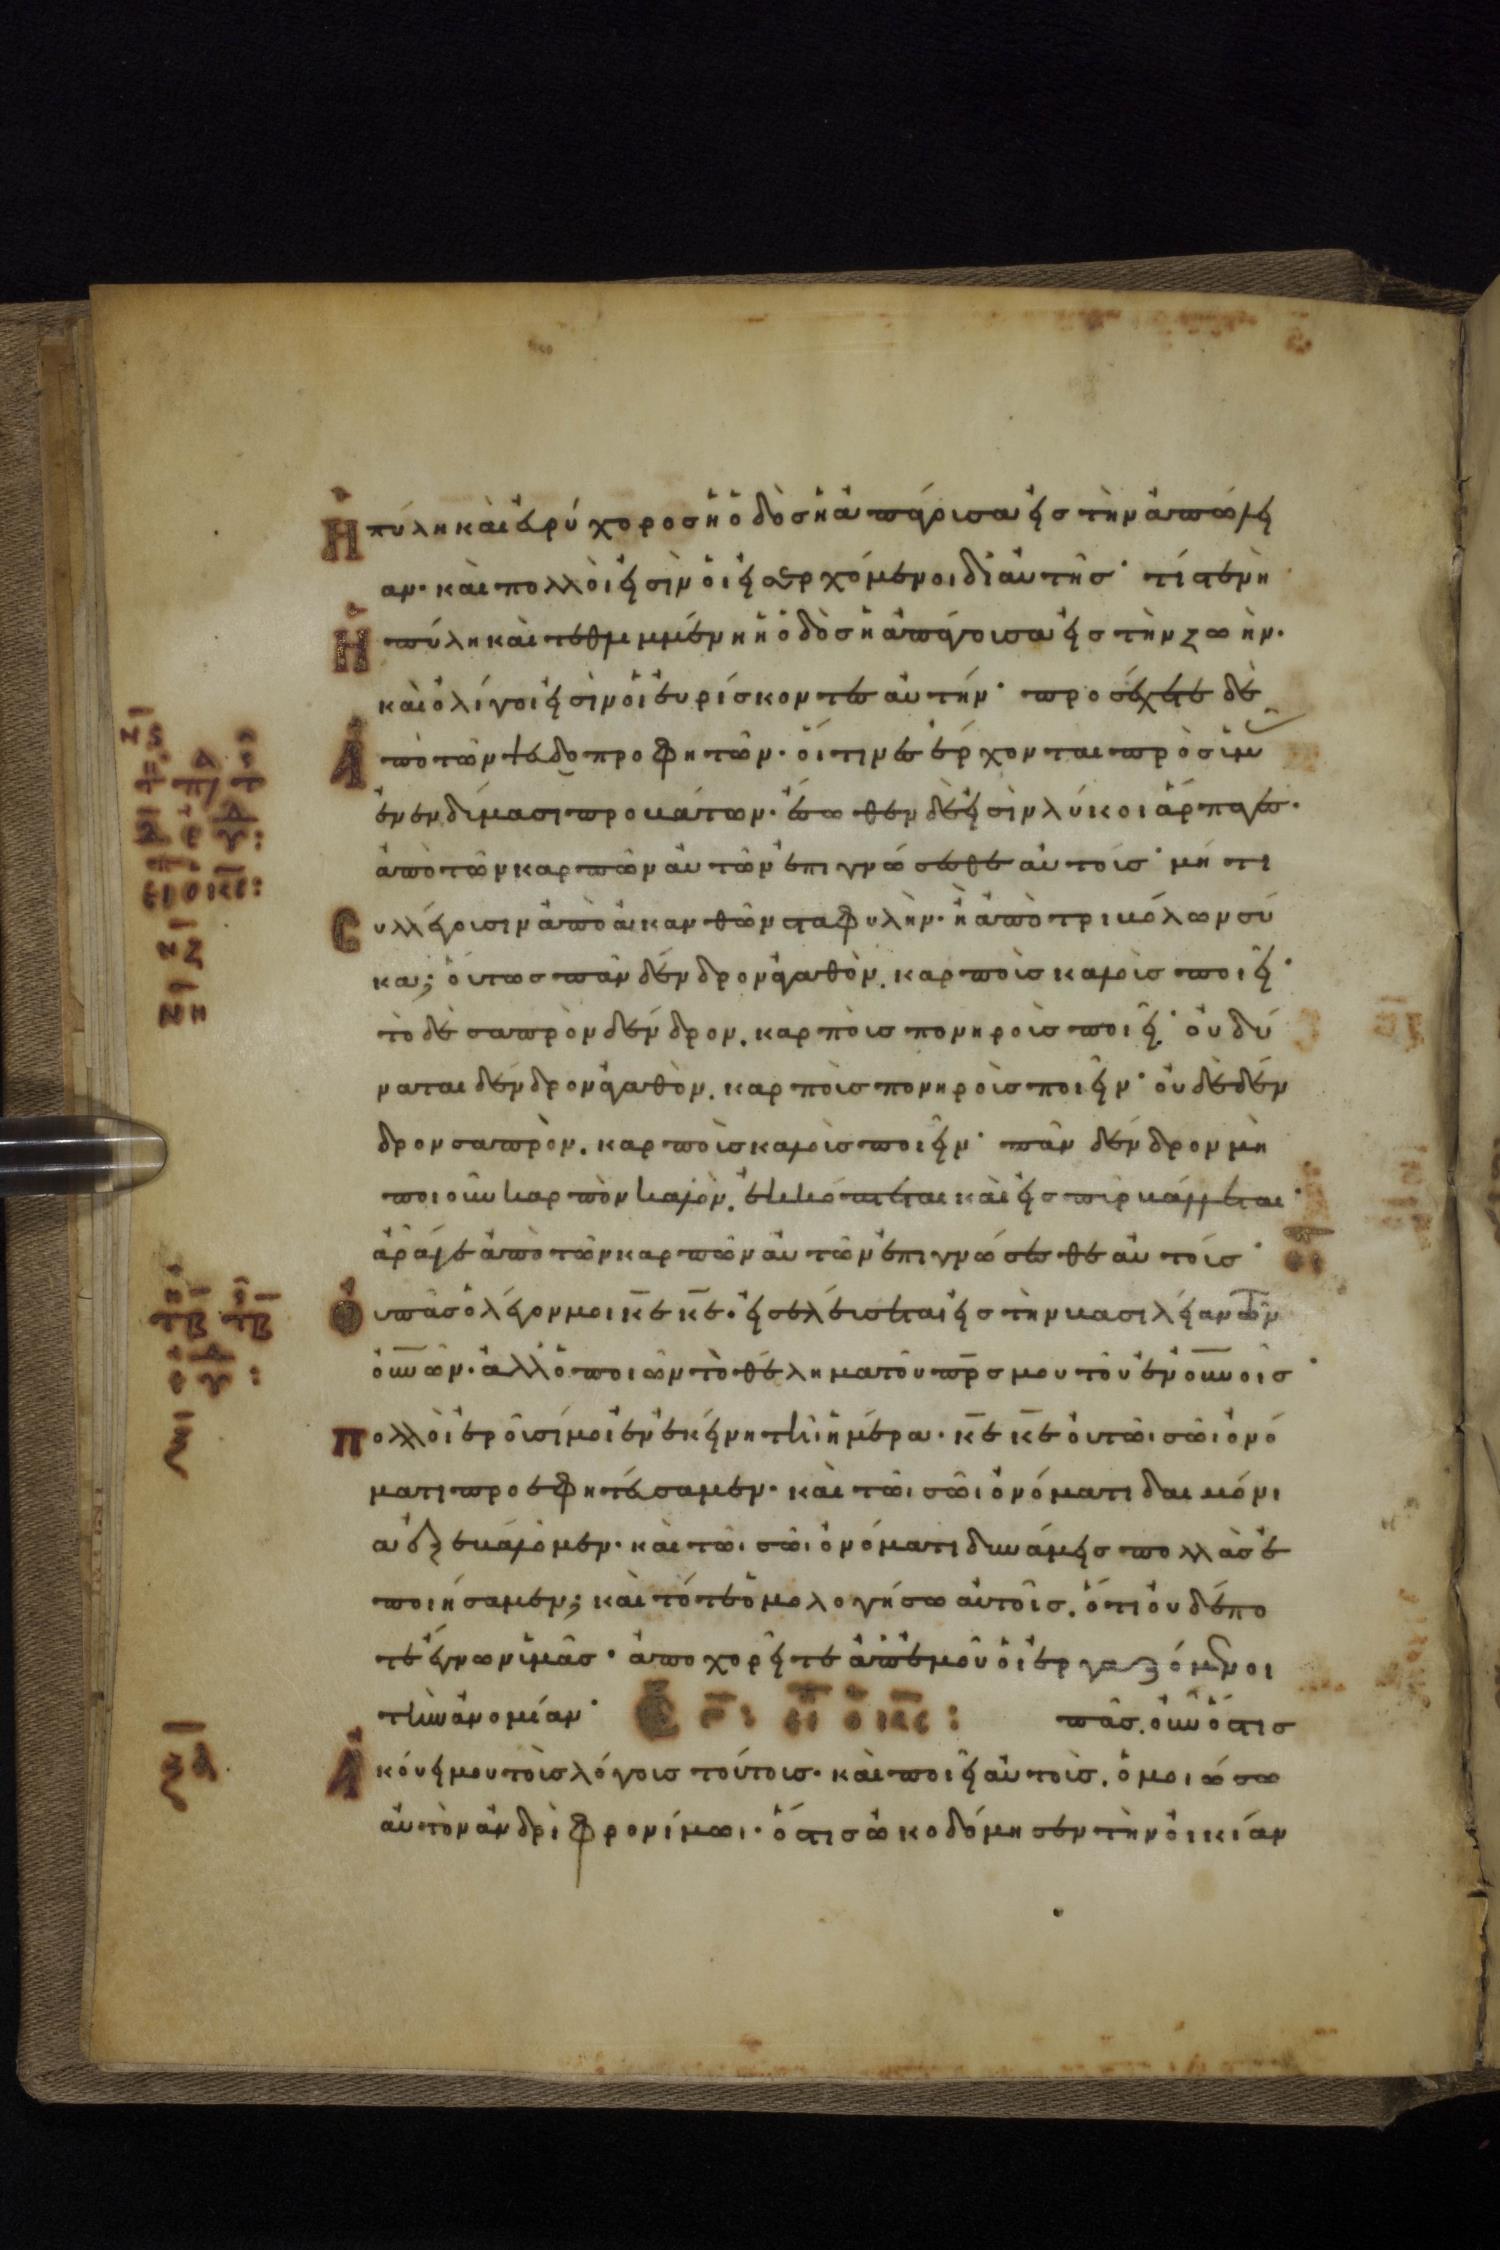 Ἡ πύλη καὶ ἐυρύχορος ἡ ὁδὸς ἡ ἀπάγουσα εἰς τὴν ἀπώλει
αν· καὶ πολλοὶ εἰσὶν οἱ εἰσερχόμενοι δι αὐτῆς· τί στενὴ
Ἡ πύλη καὶ τεθλιμμένη ἡ ὁδὸς ἡ ἀπάγουσα εἰς τὴν ζωὴν·
καὶ ὀλίγοι εἰσὶν οἱ ἑυρίσκοντες αὐτήν· προσέχετε δὲ
Ἀπὸ τῶν ψευδοπροφητῶν· οἵτινες ἔρχονται πρὸς ὑμᾶς
ἐν ἐνδύμασι προβάτων· ἔσωθεν δὲ εἰσὶν λύκοι ἅρπαγες·
ἀπὸ τῶν καρπῶν αὐτῶν ἐπιγνώσεσθε αὐτούς· μή τι
Συλλέγουσιν ἀπὸ ἀκανθῶν σταφυλὴν· ἢ ἀπὸ τριβόλων σύ
κα; ὅυτως πᾶν δένδρον ἀγαθὸν. καρποὺς καλοὺς ποιεῖ·
τὸ δὲ σαπρὸν δένδρον. καρποὺς πονηροὺς ποιεῖ· οὐ δύ
ναται δένδρον ἀγαθὸν. καρποὺς πονηροὺς ποιεῖν· οὐδὲ δέν
δρον σαπρὸν. καρποὺς καλοὺς ποιεῖν· πᾶν δένδρον μὴ
ποιοῦν καρπὸν καλὸν. ἐκκόπτεται καὶ εἰς πῦρ βάλλεται·
ἄρά γε ἀπὸ τῶν καρπῶν αὐτῶν ἐπιγνώσεσθε αὐτούς·
Ὀυ πᾶς ὁ λέγον μοι κ̅ε κ̅ε· εἰσελέυσεται εἰς τὴν βασιλείαν τῶν
ὀυνῶν· ἀλλ ὁ ποιῶν τὸ θέλημα τοῦ πρ̅ς μου τοῦ ἐν ὀυνοῖς·
Πολλοὶ ἐροῦσί μοι ἐν ἐκείνη τῆι ἡμέρα· κ̅ε κ̅ε ὀυ τῶι σῶι ὀνό
ματι προεφητέυσαμεν· καὶ τῶι σῶι ὀνόματι δαιμόνι
α ἐξεβάλομεν· καὶ τῶι σῶι ὀνόματι δυνάμεις πολλὰς ἐ
ποιήσαμεν; καὶ τότε ὁμολογήσω αὐτοῖς. ὅτι ὀυδέπο
τε ἔγνων ὑμᾶς· ἀποχορεῖτε ἀπ ἐμοῦ ὁι ἐργαζόμενοι
τὴν ἀνομίαν· εἶπεν ὁ κ̅ς: πᾶς. ὀυν ὅστις
Ἀκόυει μου τοὺς λόγους τούτους· καὶ ποιεῖ αὐτοὺς. ὁμοιώσω
αὐτὸν ἀνδρὶ φρονίμωι· ὅστις ὠκοδόμησεν τὴν ὀικίαν